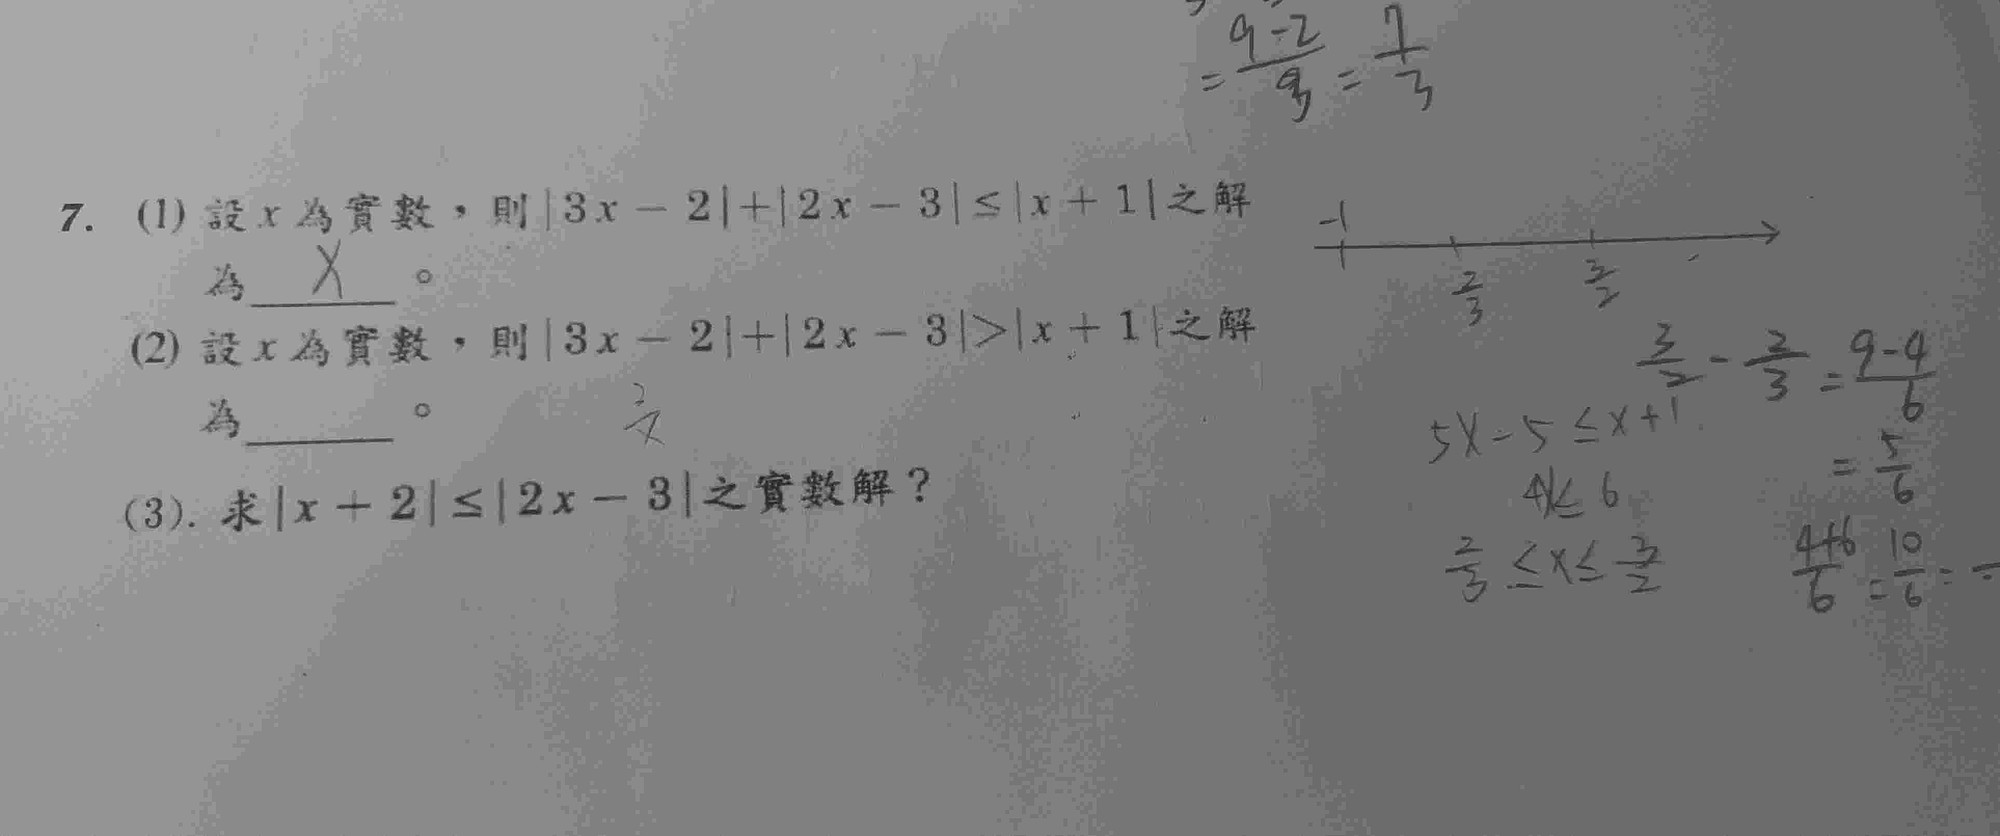 = 9-2/3 = 7/3
7. (1) 設 x 為實數，則 |3x − 2|+|2x − 3| ≤ |x + 1| 之解
為 X 。
(2) 設 x 為實數，則 |3x − 2|+|2x − 3|>|x + 1| 之解
為______。
(3). 求 |x + 2| ≤ |2x − 3| 之實數解？
-1
2/3 3/2
3/2 - 2/3 = 9-4/6
5x-5 ≤ x+1
= 5/6
4x ≤ 6
2/3 ≤ x ≤ 3/2
4+6/6 = 10/6 =